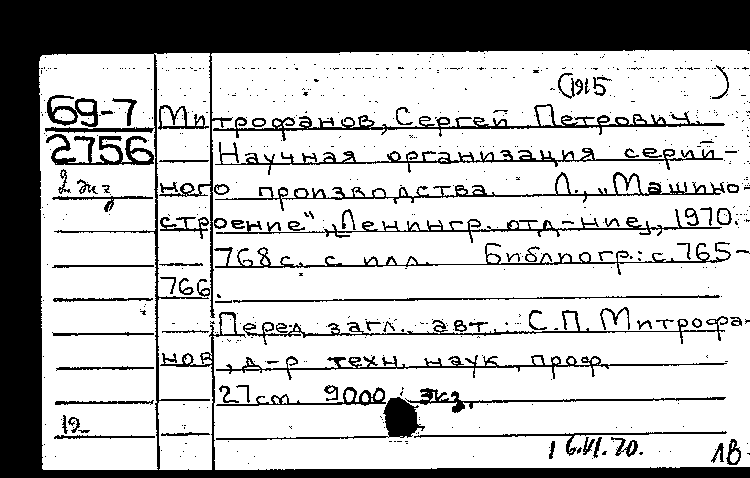 (1915 )
69-7 Митрофанов, Сергей Петрович.
2756 Научная организация серий-
2 экз ного производства. Л., „Машино-
строение", [Ленингр. отд-ние], 1970.
768 с. с илл. Библиогр.: с. 765-
766.
Перед загл. авт.: С.П. Митрофа-
нов, д-р техн. наук, проф.
27 см. 9000 экз.
12
16.VI.70. 1В